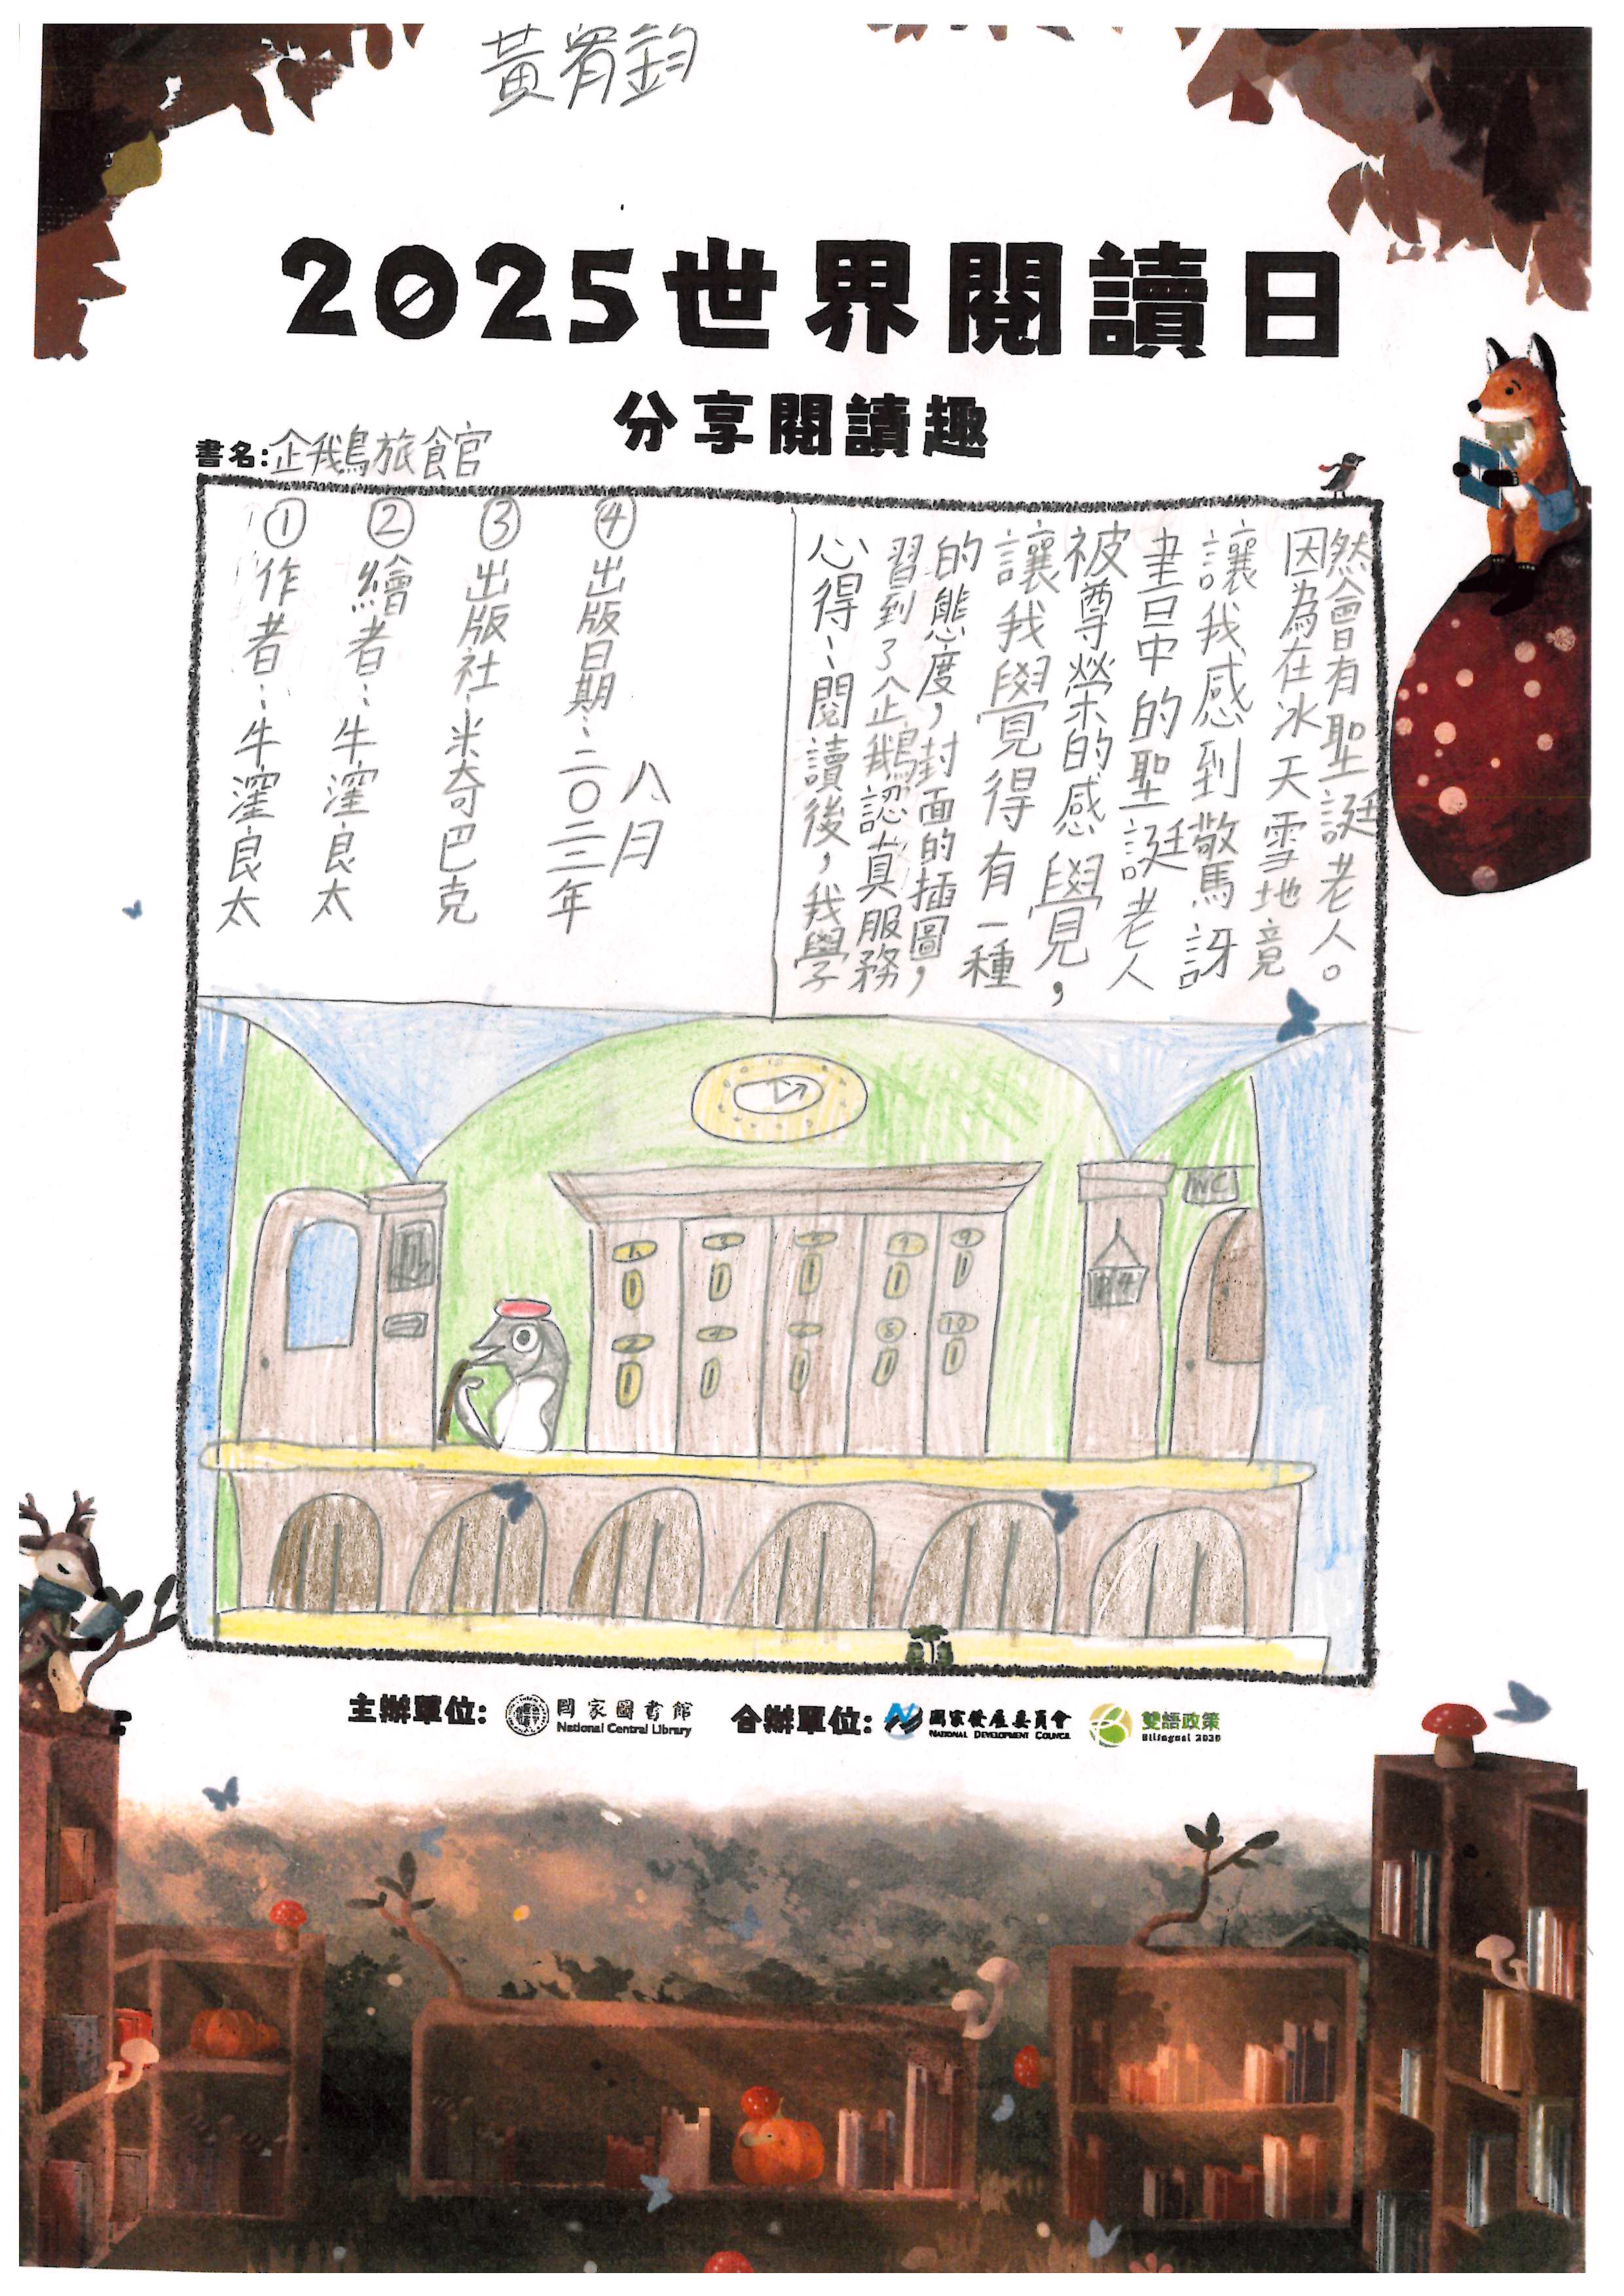 黃宥鈞
2025世界閱讀日
分享閱讀趣
書名:企鵝旅館
①作者:牛窪良太
②繪者:牛窪良太
③出版社:米奇巴克
④出版日期:二〇二三年
八月
心得:閱讀後,我學
習到了企鵝認真服務
的態度,封面的插圖,
讓我覺得有一種
被尊榮的感覺,
書中的聖誕老人
讓我感到驚訝
因為在冰天雪地竟
然會有聖誕老人。
WC
1 3 5 7 9
2 4 8 10
主辦單位: 國家圖書館 合辦單位: 國家發展委員會 雙語政策
National Central Library NATIONAL DEVELOPMENT COUNCIL Bilingual 2030